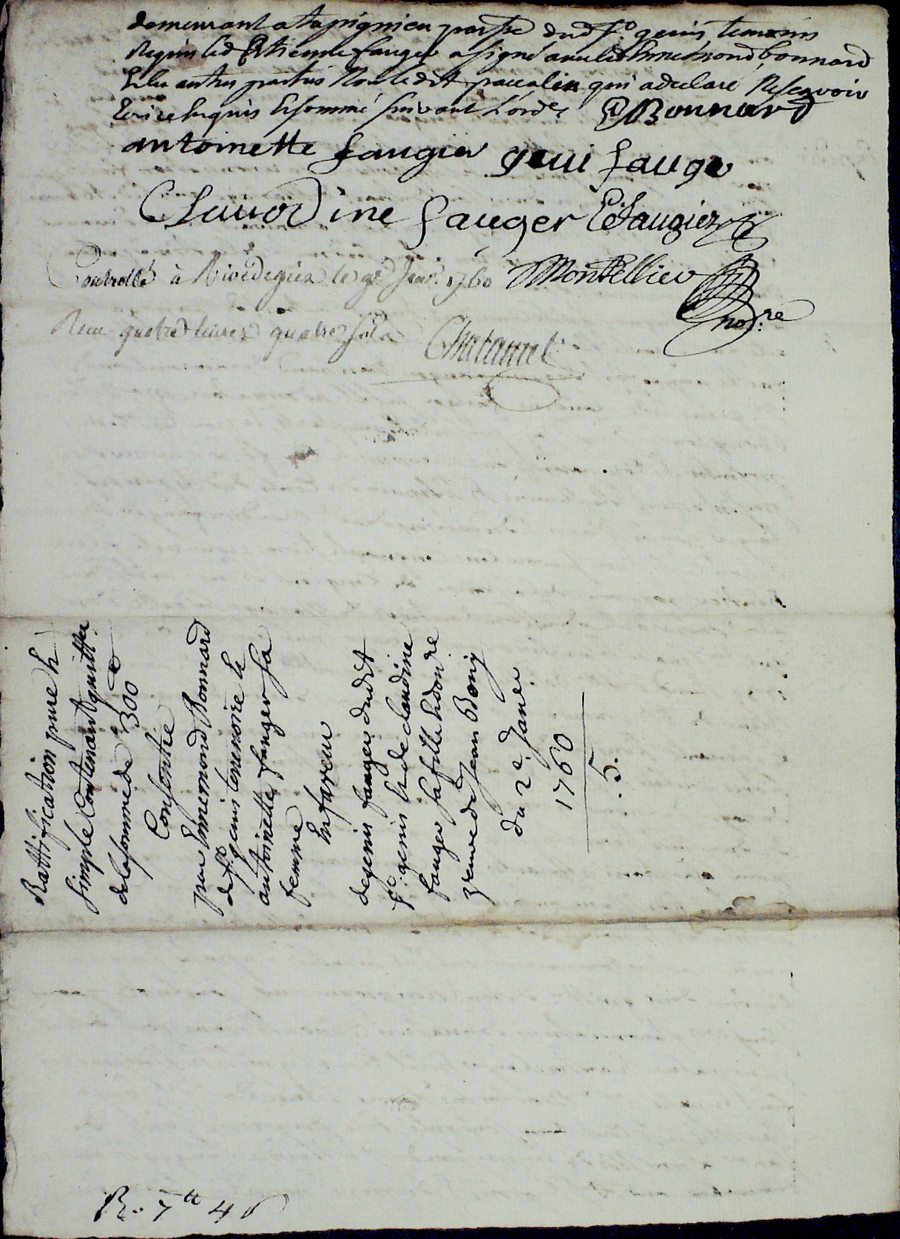 demeurant a tapignieu parsse dud st genis, temoins
Requis led Etienne fauger a signé avec led Ennemond bonnard
Et les autres parties Non ledit paccalin qui a declaré Ne scavoir
Ecrire Enquis Et sommé suivant L'ord.e E Bonnard
antoinette faugier geni fauge
Claurodine fauger E faugier
Controllé à Rivedegier le 9e Janv. 1760 Montellier
no.re
Receu quatre livres quatre sols Chatannet
Rattification pure &
simple Contenant quittce
de la somme de 300
Consentie
par Ennemond Bonnard
de st genis terrenoire &
antoinette fauger sa
femme
En faveur
de genis fauger dudit
st genis & de claudine
fauger sa fille
veuve de Jean
du 2e Janer
1760
5.
R. 7tt 4 s